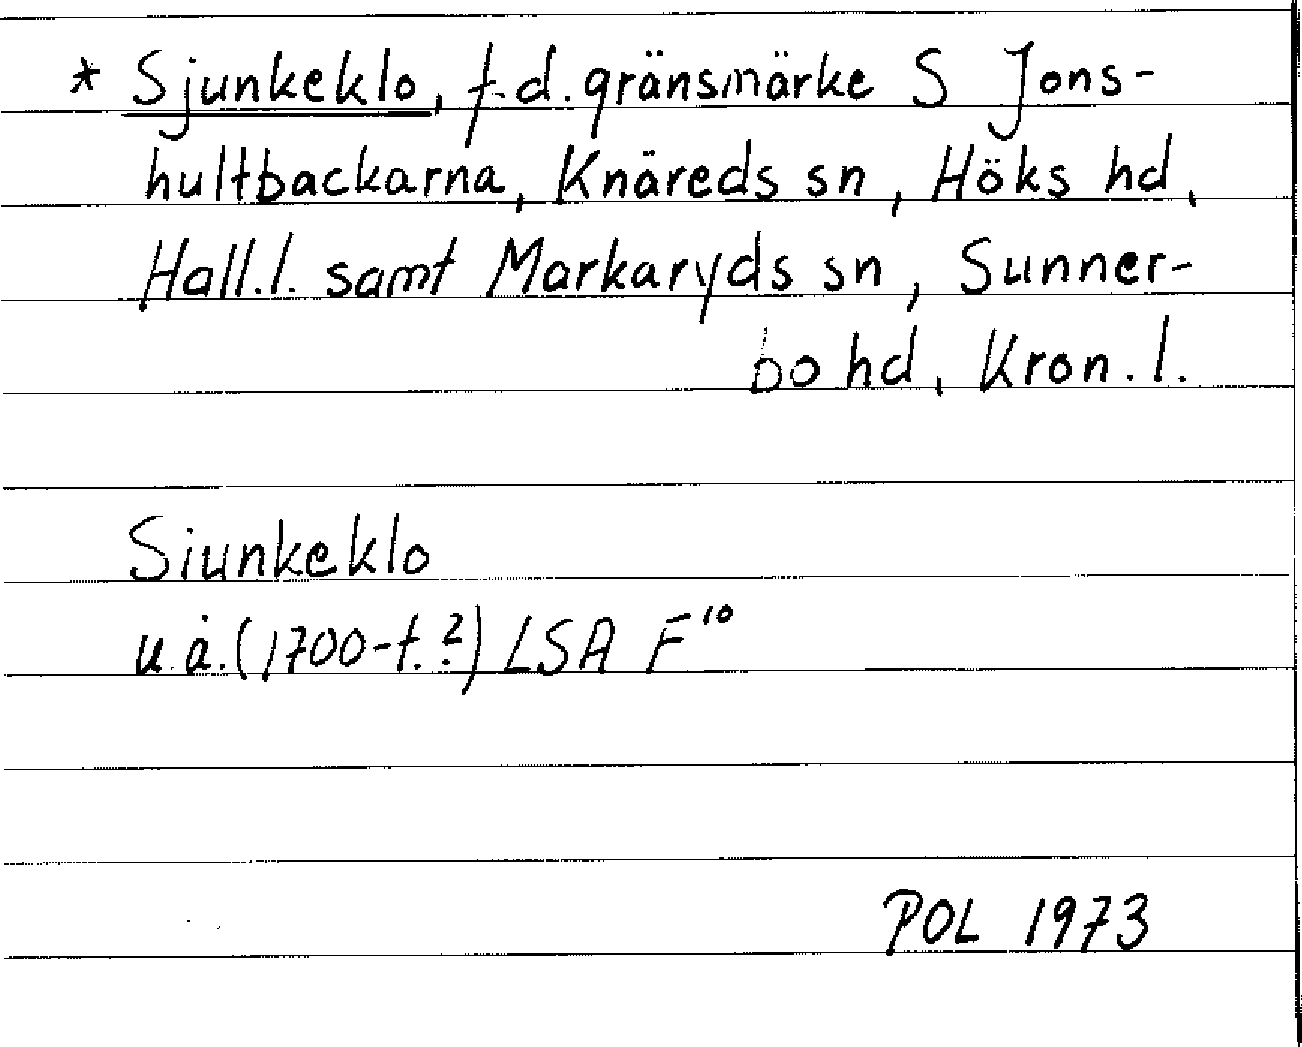 * Sjunkeklo, f.d. gränsmärke S Jons-
hultbackarna, Knäreds sn, Höks hd,
Hall.l. samt Markaryds sn, Sunner-
bo hd, Kron.l.
Siunkeklo
u.å. (1700-t.?) LSA F10
POL 1973